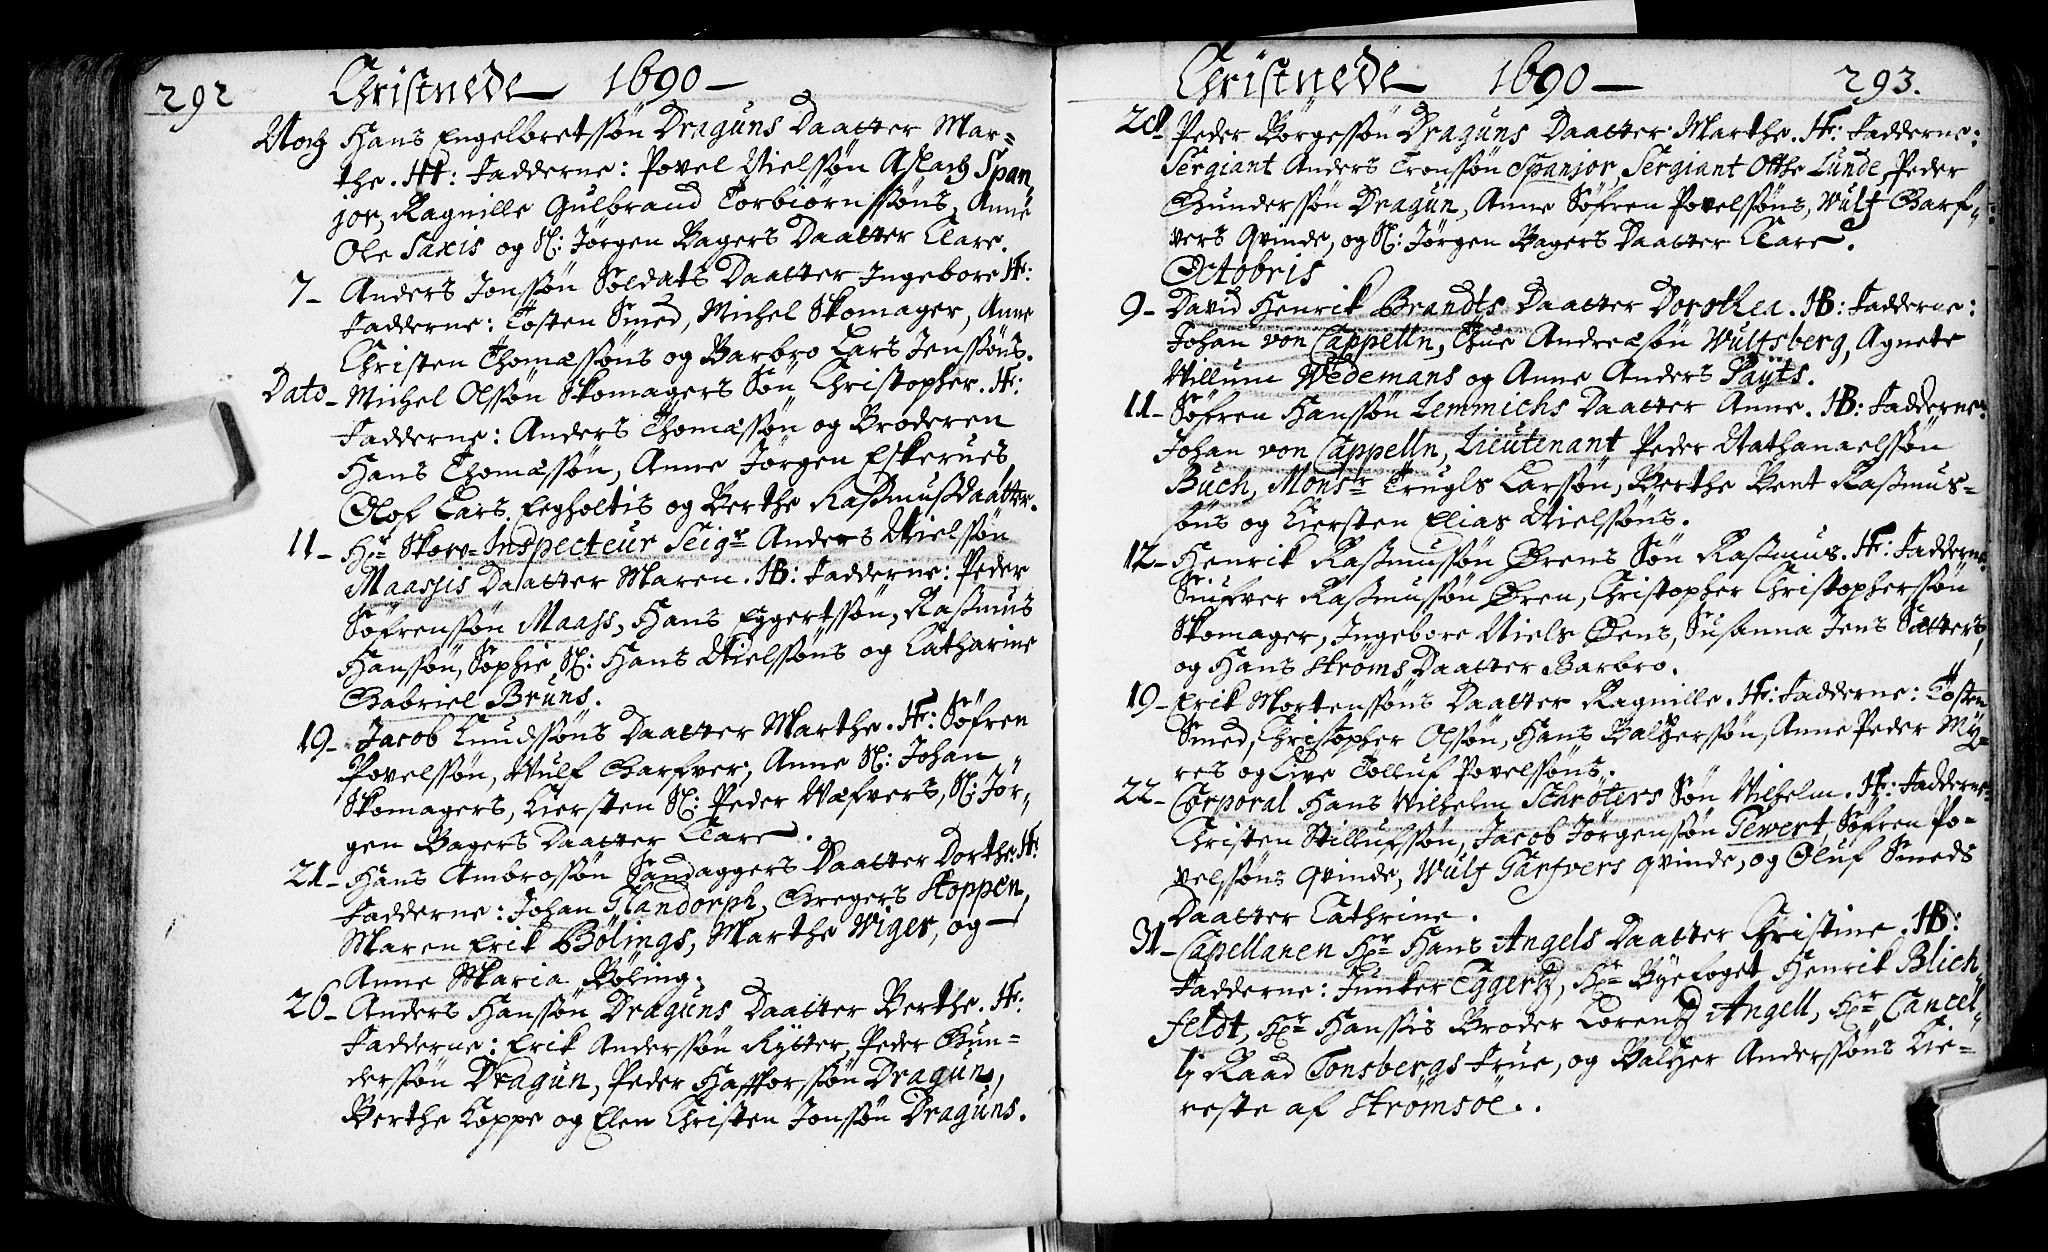 292 Christnede 1690
Noch Hans Engelbretssøn Draguns Daatter Mar=
the. Hr: Fadderne: Povel Nielssøn Aslach Span
jor, Ragnille Gulbrand Torbiørnssøns, Anne
Ole Saxis og Sl: Jørgen Bagers Daatter Clare.
7 - Anders Jonssøn Soldats Daatter Ingebore Hr:
Fadderne: Tosten Smed, Michel Skomager, Anne
Christen Thomæssøns og Barbro Lars Jenssøns.
Dato - Michel Olssøn Skomagers Søn Christopher. Hr:
Fadderne: Anders Thomæssøn og Broderen
Hans Thomæssøn, Anne Jørgen Eskerues
Olof Lars Eegholtis og Berthe Rasmusdaatter.
11 - Hr Skov=Inspecteur Seigr Anders Nielssøn
Maassis Daatter Maren. HB: Fadderne: Peder
Søfrenssøn Maass, Hans Eggertssøn, Rasmus
Hanssøn, Sophie Sl: Hans Nielssøns og Catharine
Gabriel Bruns.
19 - Jacob Knudssøns Daatter Marthe. Hr: Søfren
Povelssøn, Wulf Garfver, Anne Sl: Johan
Skomagers, Kiersten Sl: Peder Wæfvers, Sl: Jør,,
gen Bagers Daatter Clare.
21 - Hans Ambrossøn Sandaggers Daatter Dorthe. Hr:
Fadderne: Johan Glandorph, Gregers Stoppen,
Maren Erik Bølings, Marthe Wiger, og
Anne Maria Bøling.
26 - Anders Hanssøn Draguns Daatter Berthe. Hr:
Fadderne: Erik Anderssøn Rytter, Peder Gun=
derssøn Dragun, Peder Hafforssøn Dragun,
Berthe Koppe og Elen Christen Jonssøn Draguns.
Christnede 1690 293.
28 Peder Børgessøn Draguns Daatter Marthe. Hr: Fadderne:
Sergiant Anders Tronssøn Spanjor, Sergiant Otthe Lunde, Peder
Gunderssøn Dragun, Anne Søfren Povelssøns, Wulf Garf,,
vers Qvinde, og Sl: Jørgen Bagers Daatter Clare.
Octobris
9 - David Henrik Brandts Daatter Dorothea. HB: Fadderne:
Johan von Cappelln, Thue Andreæsøn Wultsberg, Agnete
Willum Wedemans og Anne Anders Payts.
11 - Søfren Hanssøn Lemmichs Daatter Anne. HB: Fadderne:
Johan von Cappelln, Lieutenant Peder Nathanaelssøn
Buch, Monsr Trugls Larssøn, Berthe Bent Rasmus=
søns og Kiersten Elias Nielssøns.
12 - Henrik Rasmussøn Ørens Søn Rasmus. Hr: Fadderne:
Siufver Rasmussøn Øren, Christopher Christopherssøn
Skomager, Ingebore Niels Øens, Susanna Jens Sætters,
og Hans Strøms Daatter Barbro.
19 - Erik Mortenssøns Daatter Ragnille. Hr: Fadderne: Tosten
Smed, Christopher Olssøn, Hans Baltzerssøn, Anne Peder My=
res og Live Tolluf Povelssøns.
22 - Corporal Hans Wilhelm Schrøters Søn Wilhelm. Hr: Fadderne:
Christen Stillufssøn, Jacob Jørgenssøn Gewert, Søfren Po=
velssøns Qvinde, Wulf Garfvers qvinde, og Oluf Smeds
Daatter Cathrine.
31 - Capellanen Hr Hans Angels Daatter Christine. HB:
Fadderne: Junker Eggertz, Hr Byefoget Henrik Blich,,
feldt, Hr Hanssis Broder Lorentz Angell, Hr Cancel,,
li Raad Tonsbergs Frue, og Baltzer Anderssøns Kie=
reste af Strømsøe.